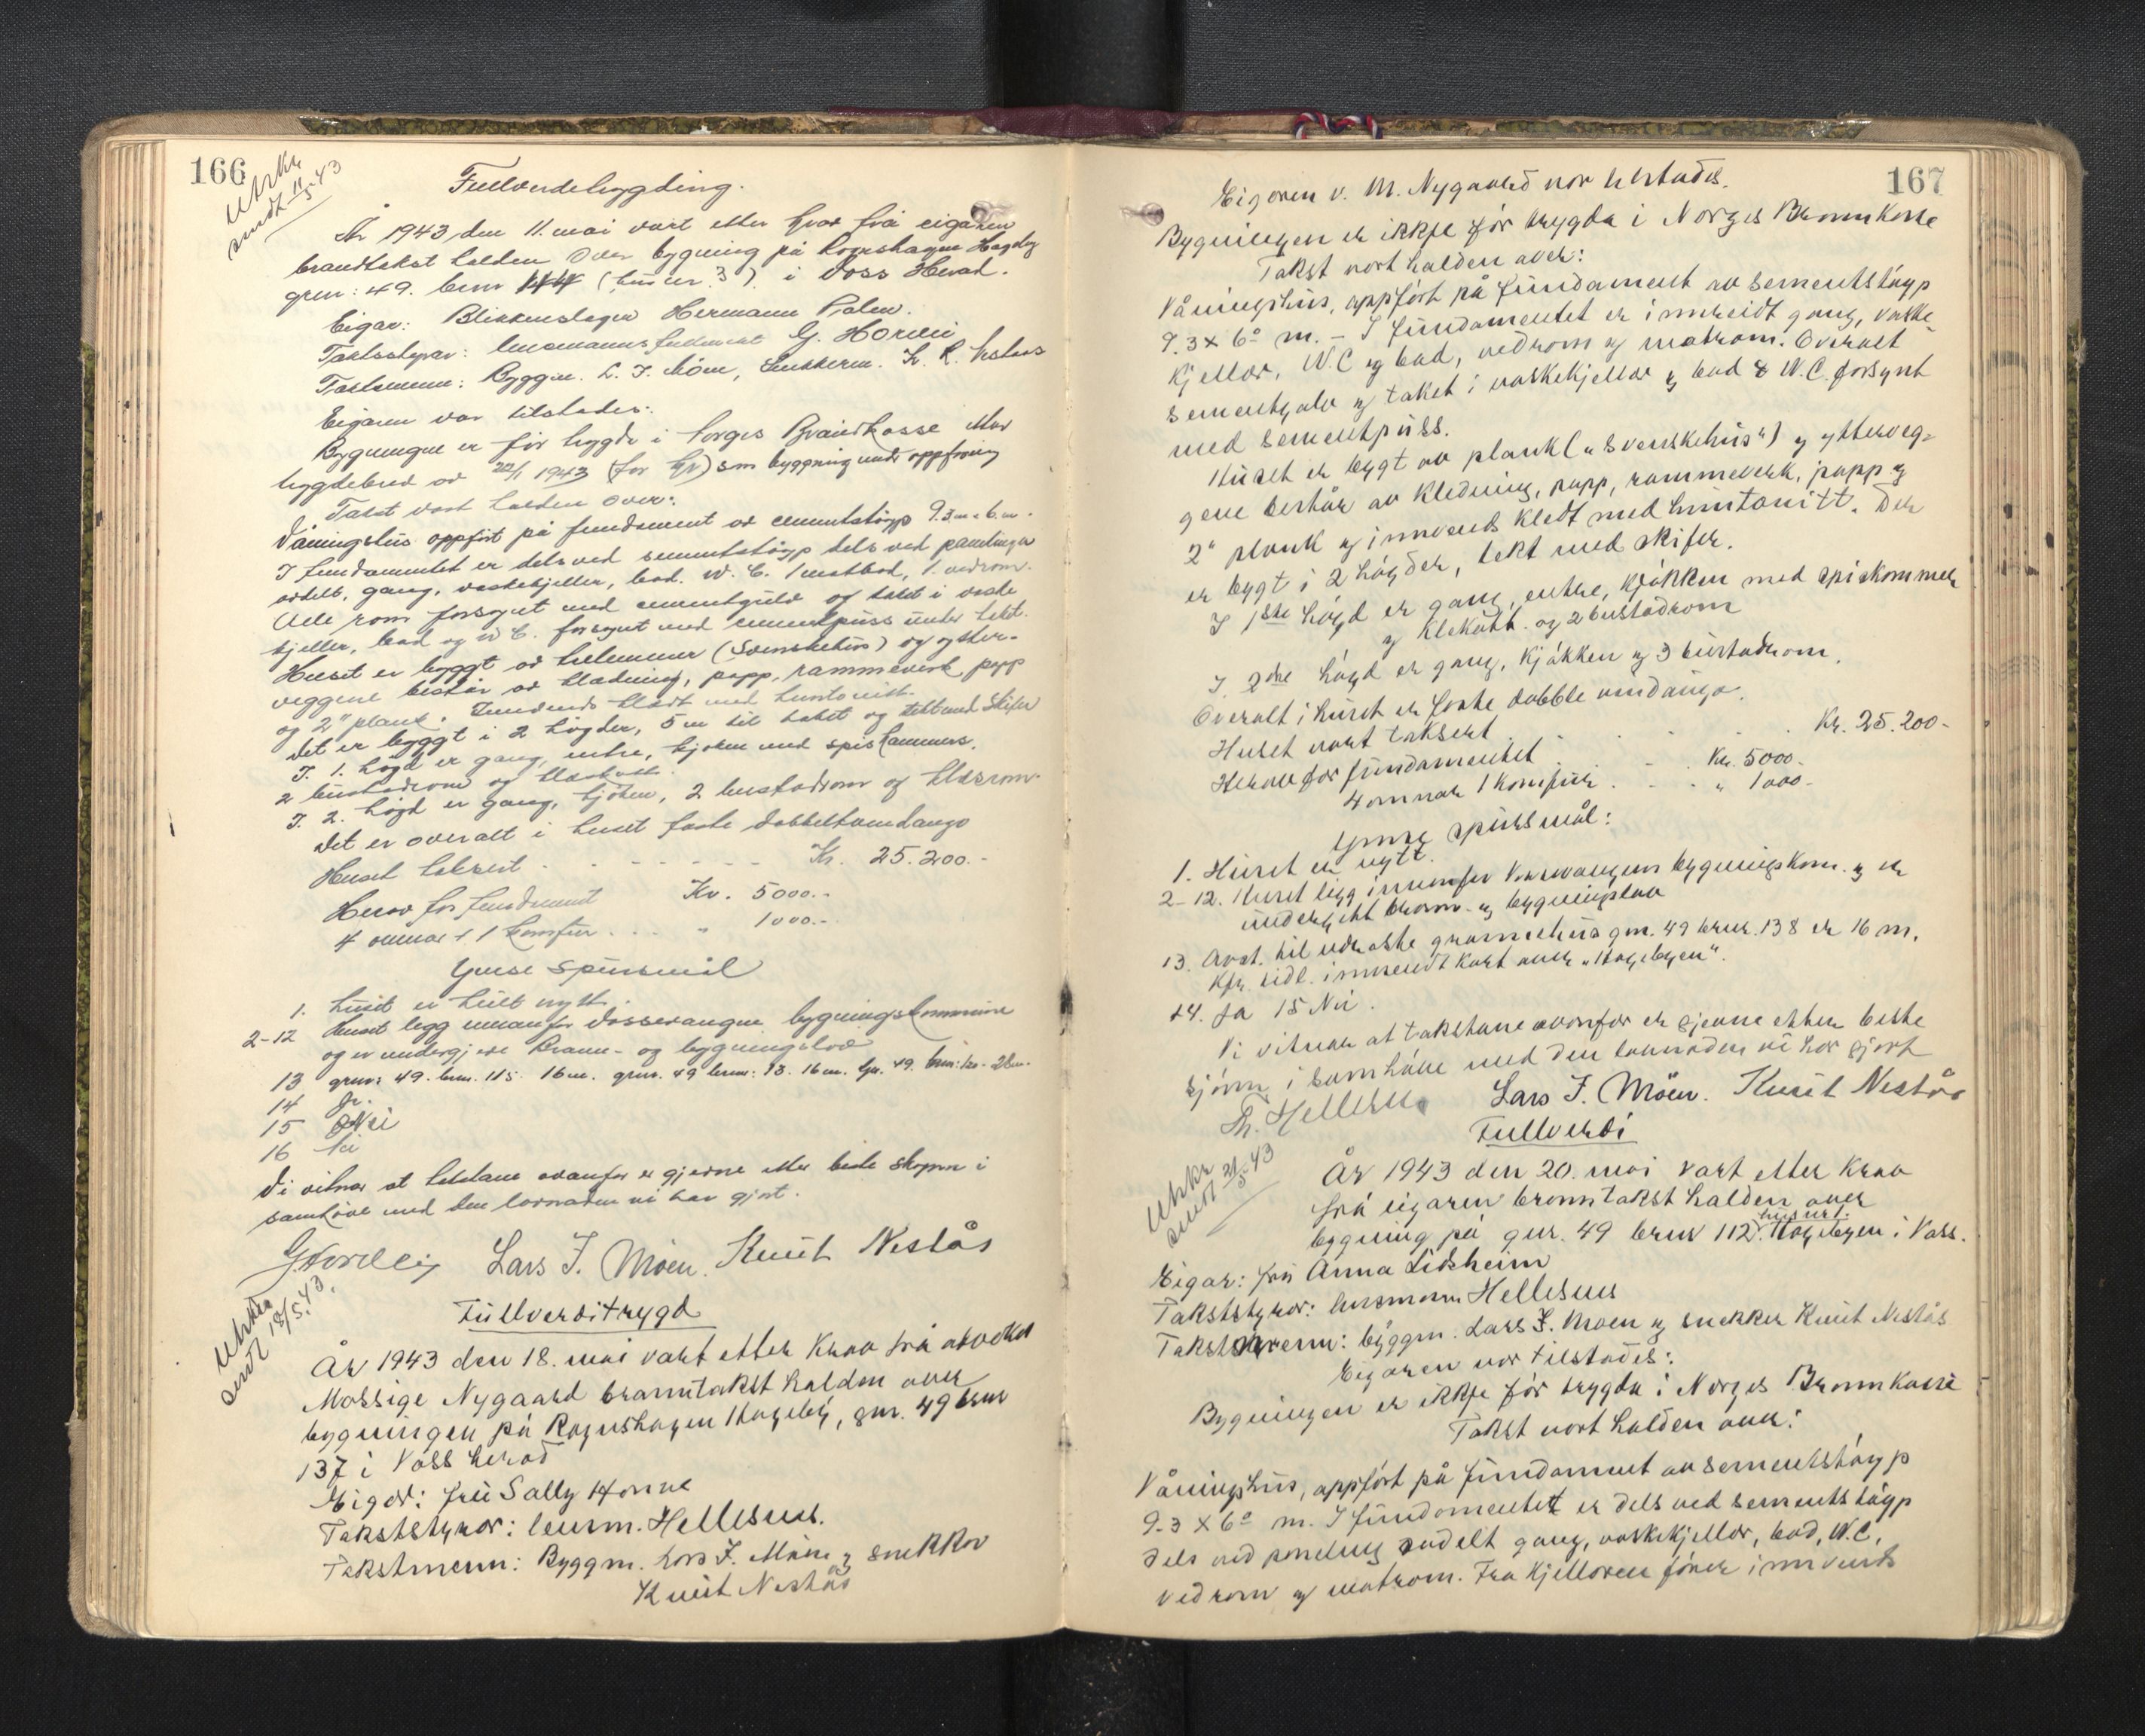 166
Utskr.
sendt 11/5 43
Fullverdetrygding.
År 1943 den 11. mai vart etter krav frå eigaren
brandtakst halden over bygning på Rognshaugen Hageby
grnr: 49. brnr 144 (husnr. 3) i Voss Herad.
Eigar: Blikkenslager Hermann
Takststyrar: lensmannsfullmekt G. Horvei
Takstmenn: Byggm. L. J. Møen, Snikkerm. K. Nestås
Eigaren var tilstades:
Bygningen er før trygda i Norges Brandkasse
trygdebrev av 22/1 1943 som byggning under oppføring
Takst vart halden over:
Våningshus oppført på fundament av cementstøyp 9.3 m x 6. m.
I fundamentet er dels ved sementstøyp dels ved panelinger
avdelt, gang, vaskekjeller, bad. W.C. 1 matbod, 1. vedrom.
Alle rom forsynt med cementgulv og taket i vaske
kjeller, bad og W.C. forsynt med cementpuss under taket.
Huset er bygt av (Svenskehus) og ytter-
veggene består av klædning, papp, rammeverk papp
og 2" plank. Innvendes klædt med huntonitt.
Det er byggt i 2 høgder, 5 m til taket og tekt med Skifer
I. 1. høgd er gang, entre, kjøken med spiskammers.
2 bustadrom og klæskott.
I. 2. høgd er gang, kjøken, 2 bustadrom og klæsrom.
Det er overalt i huset faste dobbeltvindaugo
Huset taksert . - - - - - - Kr. 25.200.-
Herav for fundament Kr. 5000.-
4 omnar + 1 komfur . . . " 1000.-
Ymse Spursmål
1. Huset er heilt nytt.
2-12 Huset legg innanfor Vossevangen bygningskommune
og er undergjeve Brann- og bygningslov
13 grnr: 49. brnr. 115. 16 m. grnr. 49 brnr: 13. 16 m. Gr. 49.
14 Ja.
15 Nei
16 Nei
Vi vitnar at takstane ovanfor er gjevne etter beste skjønn i
samhøve med den lovnaden vi har gjort.
G Horvei Lars J. Møen. Knut Nestås
Utskr.
sendt 18/5.43.
Fullverditrygd
År 1943 den 18. mai vart etter krav frå advokat
Massige Nygaard branntakst halden over
bygningen på Rognshaugen Hageby, gnr. 49 brnr
137 i Voss herad
Eigar: fru Sally Honne
Takststyrar: lensm. Hellesnes.
Takstmenn: Byggm. Lars J. Møen og snekkar
Knut Nestås
167
Eigaren v. M. Nygaard var tilstades.
Bygningen er ikkje før trygda i Norges Brannkasse
Takst vart halden over:
Våningshus, oppført på fundament av sementstøyp
9.3 x 6º m. - I fundamentet er innreidt gang, vaske-
kjellar, W.C og bad, vedrom og matrom. Overalt
sementgolv og taket i vaskekjellar og bad & W.C. forsynt
med sementpuss.
Huset er bygt av plank („Svenskehus") og ytterveg-
gene består av kledning, papp, rammeverk, papp og
2" plank og innvends kledt med huntonitt. Det
er bygt i 2 høgder, tekt med skifer.
I 1ste høgd er gang, entre, kjøkken med spiskammer
og klekott. og 2 bustadrom
I. 2dre høgd er gang, kjøkken og 3 bustadrom.
Overalt i huset er faste dobble vindaugo.
Huset vart taksert . . . . Kr. 25.200-
Herav for fundamentet . . . Kr. 5000-
4 omnar 1 komfur . . . " 1000-
Ymse spursmål:
1. Huset er nytt.
2-12. Huset ligg innanfor Vossevangens bygningskom. og er
undergjett brann- og bygningslov
13. Avst. til nærmaste grannehus gnr. 49 brnr. 138 er 16 m.
Kfr. tidl. innsendt kart over „Hagebyen".
14. Ja 15 Nei.
Vi vitnar at takstane ovanfor er gjevne etter beste
skjønn i samhøve med den lovnaden vi har gjort
Th. Hellesnes Lars J. Møen. Knut Nestås
Fullverdi
Utskr
sendt 21/5 43
År 1943 den 20. mai vart etter krav
frå eigaren branntakst halden over
bygning på gnr. 49 brnr 112. husnr 1. Hagebyen i Voss.
Eigar: fru Anna Lidsheim
Takststyrar: lensmann Hellesnes
Takstmenn: byggm. Lars J. Møen og snekker Knut Nestås
Eigaren var tilstades:
Bygningen er ikkje før trygda i Norges Brannkasse
Takst vart halden over:
Våningshus, oppført på fundament av sementstøyp
9.3 x 6º m. I fundamentet er dels ved sementstøyp
dels ved paneling avdelt gang, vaskekjellar, bad, W.C,
vedrom og matrom. Fra kjellaren fører innvends